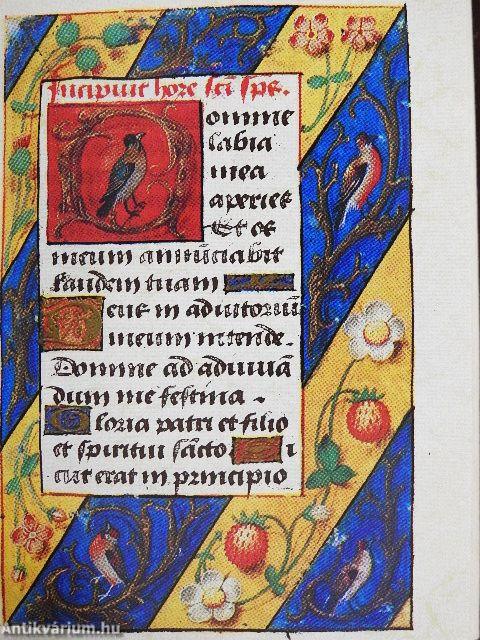 Incipiut hore sci spe.
Domine
labia
mea
aperies
Et os
meum annuciabit
laudem tuam
Deus in adiutoriū
meum intende.
Domine ad adiuuā
dum me festina
Gloria patri et filio
et spiritui sācto Si
cut erat in principio
Antikvárium.hu